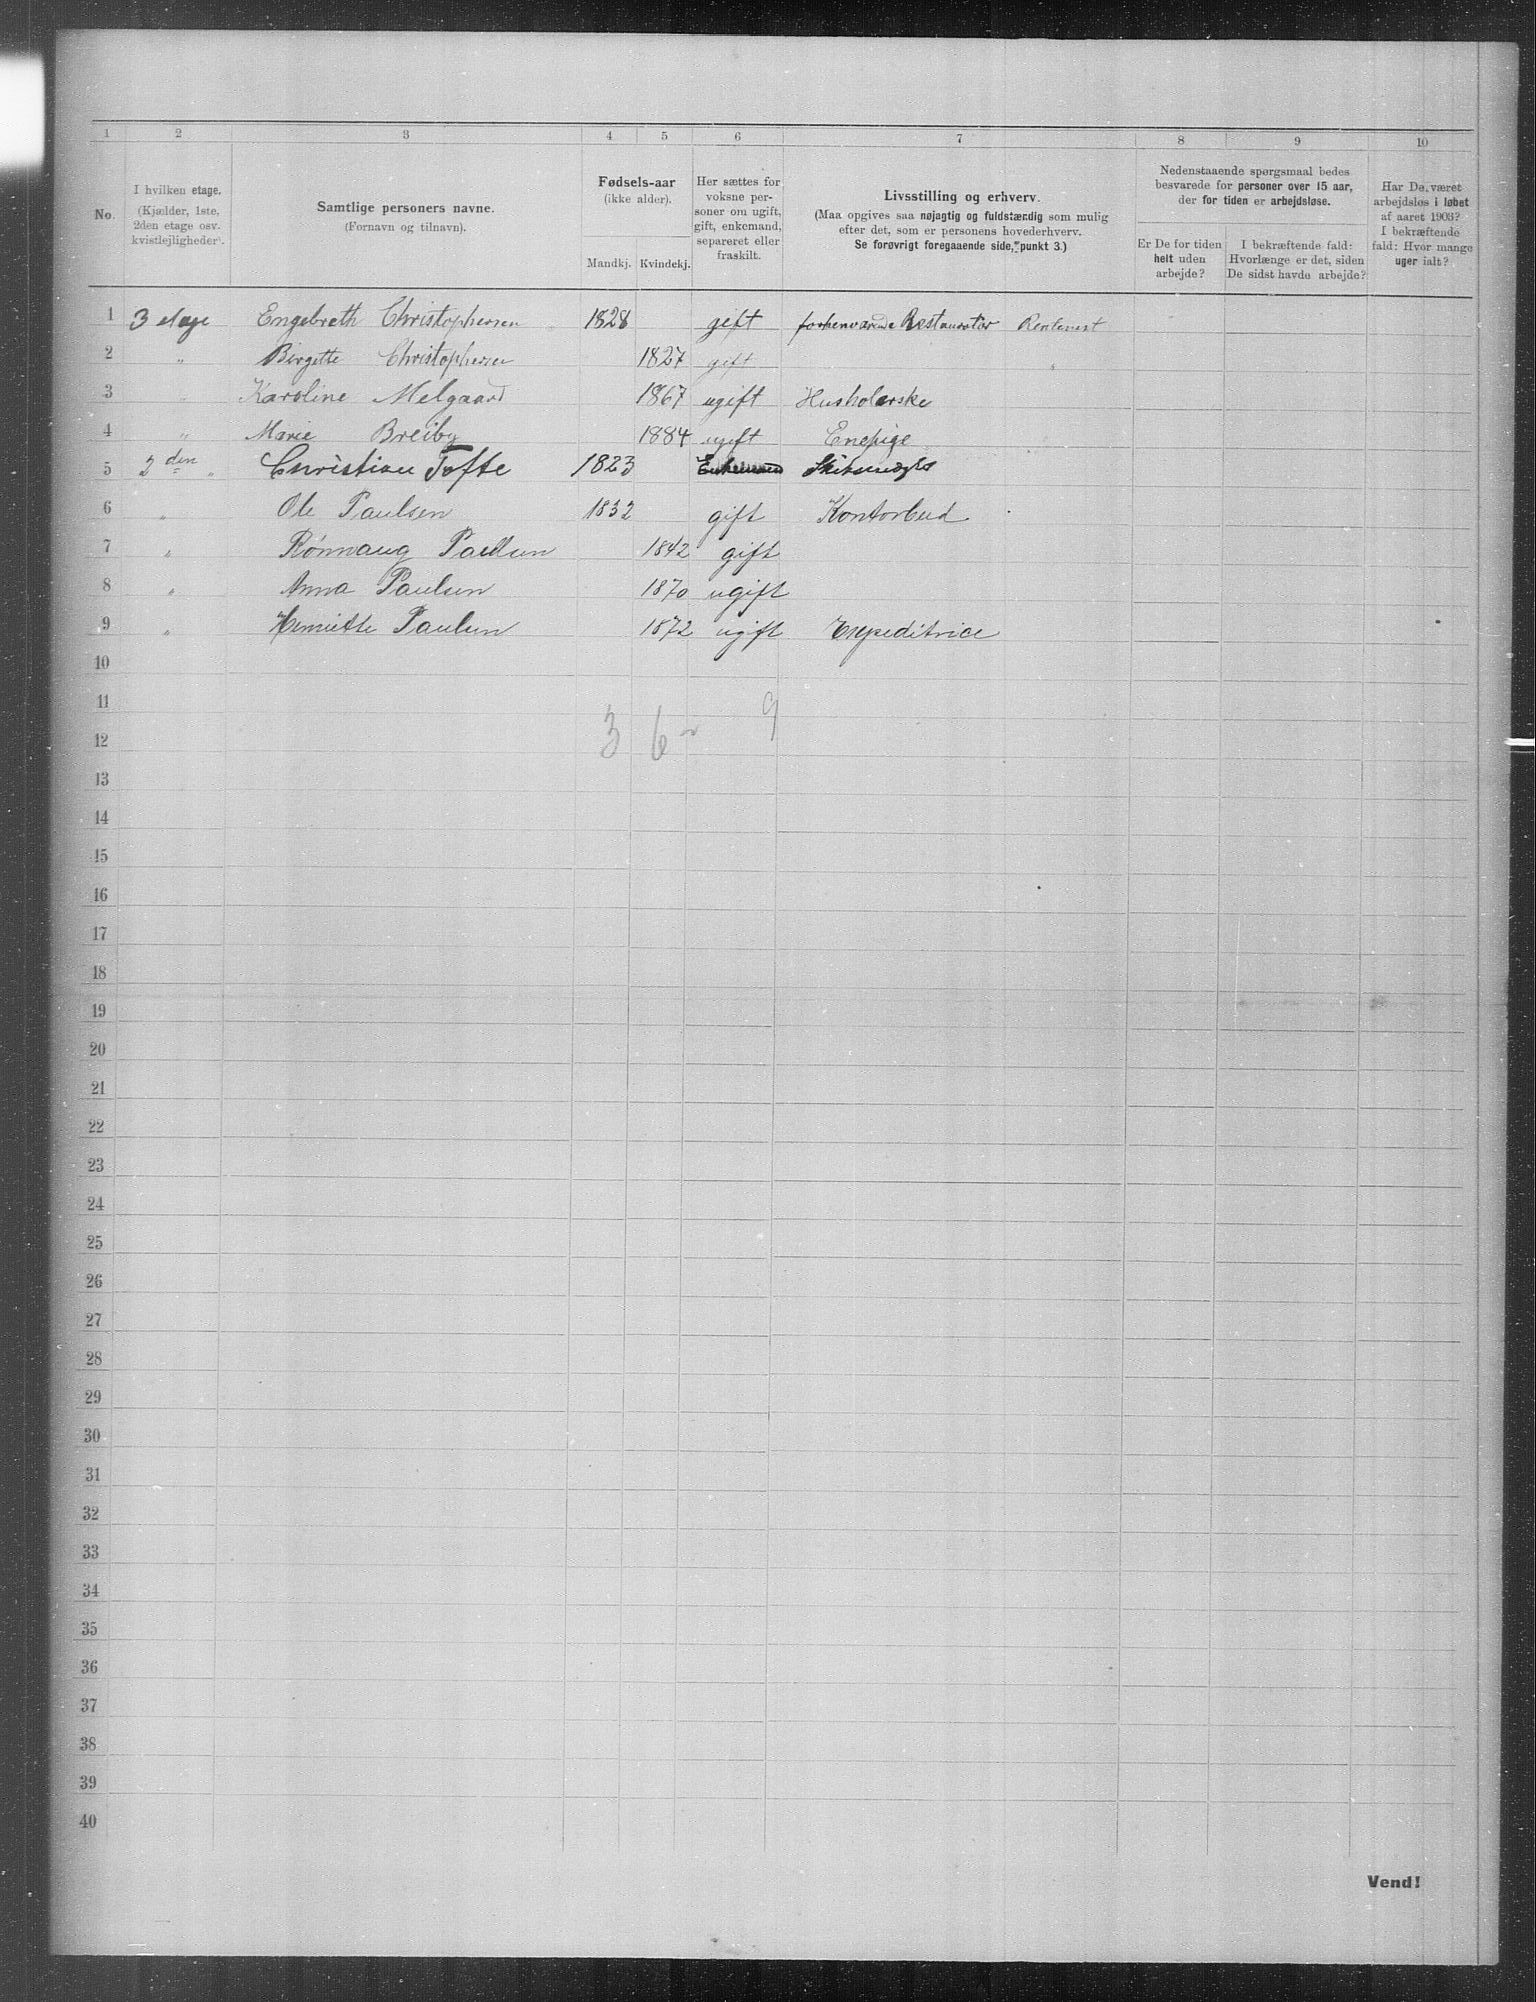 1 2 3 4 5 6 7 8 9 10
No. I hvilken etage. (Kjælder, 1ste, 2den etage osv. kvistlejligheder). Samtlige personers navne. (Fornavn og tilnavn). Fødsels-aar (ikke alder). Mandkj. Kvindekj. Her sættes for voksne personer om ugift, gift, enkemand, separeret eller fraskilt. Livsstilling og erhverv. (Maa opgives saa nøjagtig og fuldstændig som mulig efter det, som er personens hovederhverv. Se forøvrigt foregaaende side, punkt 3.) Nedenstaaende spørgsmaal bedes besvarede for personer over 15 aar, der for tiden er arbejdsløse. Er De for tiden helt uden arbejde? I bekræftende fald: Hvorlænge er det, siden De sidst havde arbejde? Har De været arbejdsløs i løbet af aaret 1903? I bekræftende fald: Hvor mange uger ialt?
1 3 etage Engebreth Christophersen 1828 gift forhenværende Restauratør Rentenist
2 " Birgitte Christophersen 1827 gift "
3 " Karoline Melgaard 1867 ugift Husholerske
4 " Marie Breiby 1884 ugift Enepige
5 2den " Christian Tofte 1823 Enkemand
6 " Ole Paulsen 1832 gift Kontorbud
7 " Rønnaug Paulsen 1842 gift
8 " Anna Paulsen 1870 ugift
9 " Henriette Paulsen 1872 ugift Expeditrice
10
11
12 3 6 9
13
14
15
16
17
18
19
20
21
22
23
24
25
26
27
28
29
30
31
32
33
34
35
36
37
38
39
40
Vend!